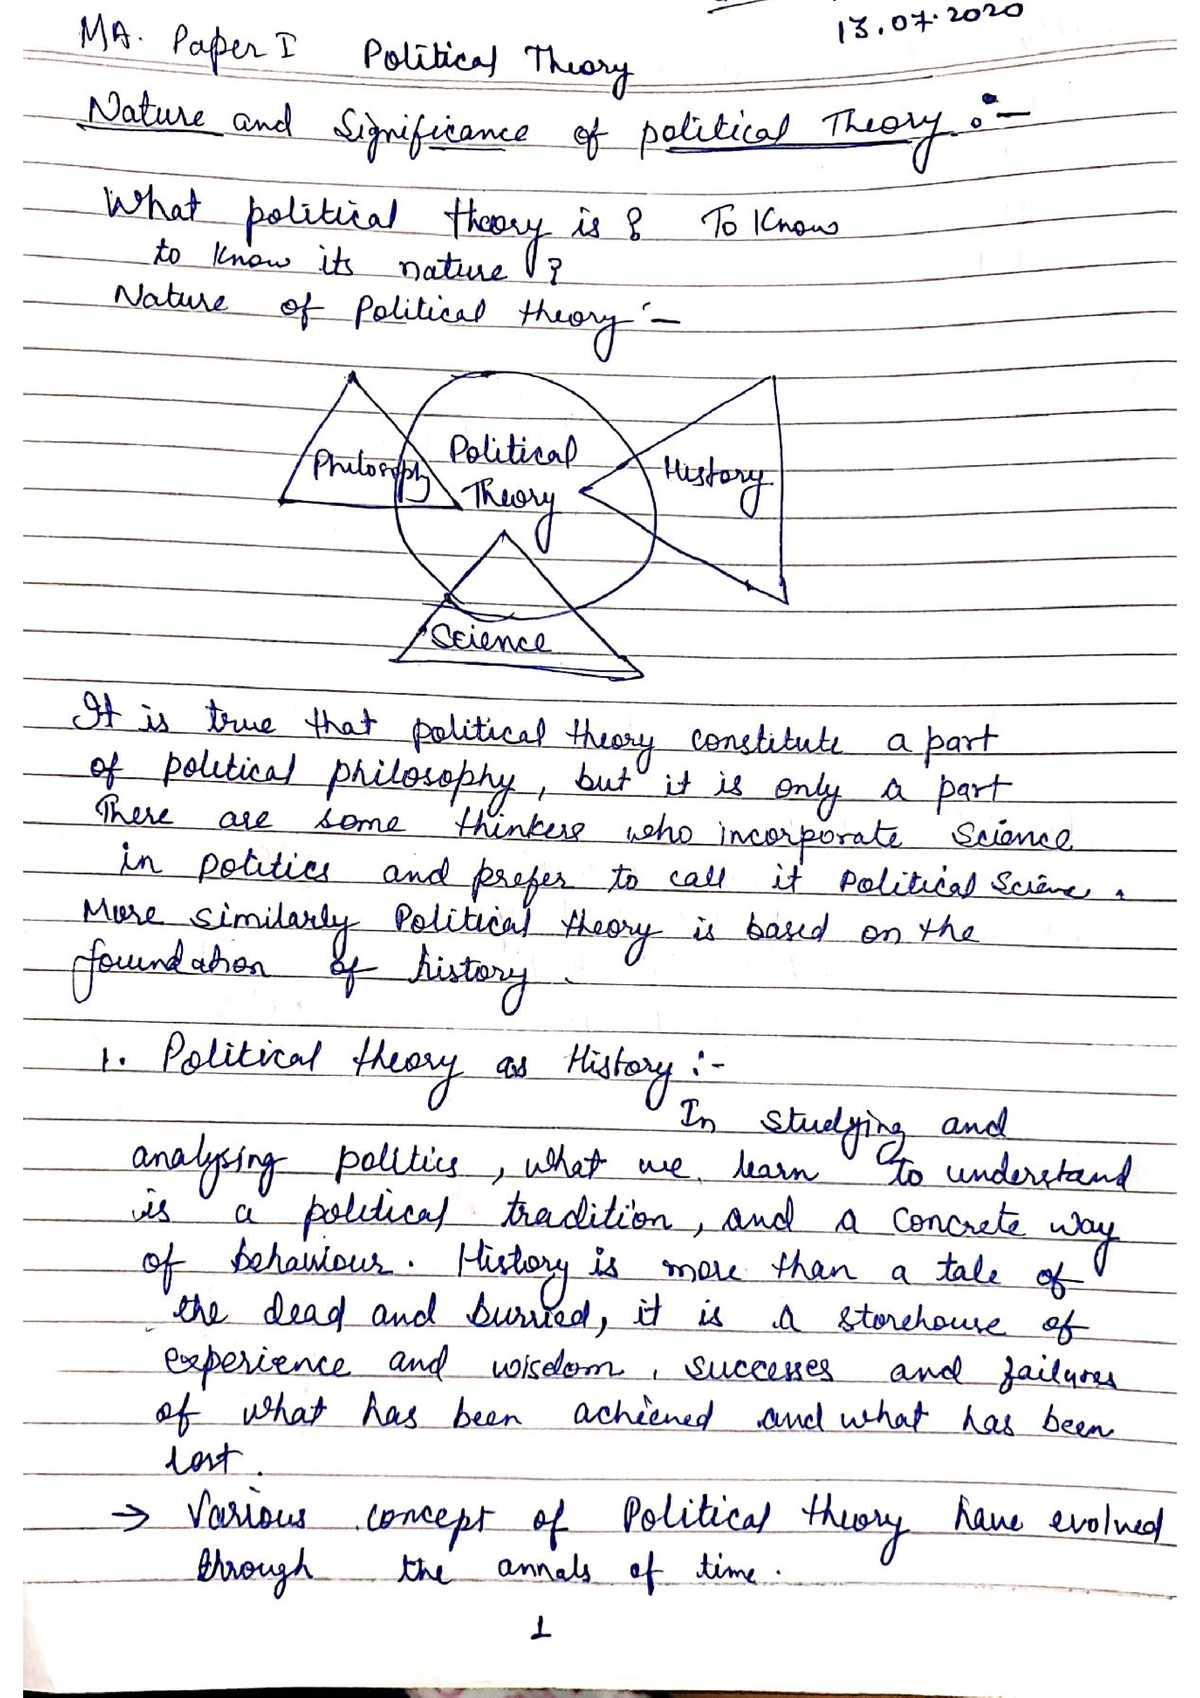 13.07.2020
MA. Paper I Political Theory
Nature and Significance of political Theory :-
What political theory is ? To Know
to know its nature ?
Nature of Political theory :-
Philosophy
Political
Theory
History
Science
It is true that political theory constitute a part
of political philosophy, but it is only a part
There are some thinkers who incorporate Science
in politics and prefer to call it Political Science.
More similarly Political theory is based on the
foundation of history.
1. Political theory as History :-
In studying and
analysing politics, what we learn to understand
is a political tradition, and a concrete way
of behaviour. History is more than a tale of
the dead and burried, it is a storehouse of
experience and wisdom, successes and failures
of what has been achieved and what has been
lost.
→ Various concept of Political theory have evolved
through the annals of time.
1